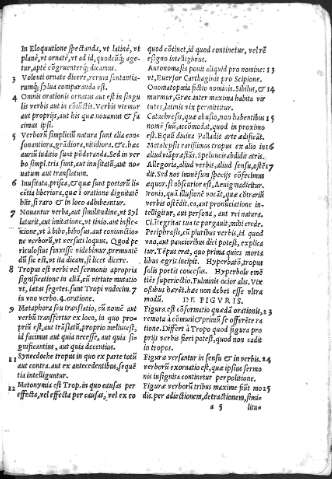 In Eloquutione spectanda, vt latinè, vt
planè, vt ornatè, vt ad id, quodcunq; age-
tur, aptè congruenterq; dicamus.
3 Volenti ornatè dicere, verua
rumq; sylua comparanda est.
4 Omnis orationis ornatus aut est in singu
lis verbis aut in coniunctis. Verbis vtemur
aut proprijs, aut his quæ nouamus & fa
cimus ipsi.
5 Verborū simplicium natura sunt alia con-
sonantiora, grādiora, nitidiora, &c. hæc
aurium iudicio sunt pōderanda. Sed in ver
bo simpl. tris sunt, aut inusitatū, aut no-
uatum aut translatum.
6 Inusitata, prisca, & quæ sunt poetarū li-
centia liberiora, quæ in oratione dignitatē
hnt, si raro & in loco adhibeantur.
7 Nouantur verba, aut similitudine, vt Syl
laturit, aut imitatione, vt tinio, aut infle-
xione, vt à bibo, bibosus, aut coniunctio-
ne verborū, vt versutiloquus. Quod pe
riculosius finxisse videbimur, præmunie
dū sic est, vt ita dicam, si licet dicere.
8 Tropus est verbi vel sermonis à propria
significatione in aliā, cū virtute mutatio
vt, lætas segetes. sunt Tropi vndecim. 7
in vno verbo. 4. oratione.
9 Metaphora siue translatio, cū nomē aut
verbū transfertur ex loco, in quo pro-
priū est, aut translatū, proprio melius est,
id facimus aut quia necesse, aut quia si-
gnificantius, aut quia decentius.
11 Synecdoche tropus in quo ex parte totū
aut contra. aut ex antecedentibus, seque
tia intelliguntur.
12 Metonymia est Trop. in quo causas per
effecta, vel effecta per causas, vel ex eo
quod cōtinet, id quod continetur, vel rē
signo intelligimus.
Antonomasia ponit aliquid pro nomine: 13
vt, Euersor Carthaginis pro Scipione.
Onomatopœia fictio nominis. Sibilus, & 14
murmur, Græc inter maximā habita vir
tutes, latinis vix permittitur.
Catachresis, quæ abusio, non habentibus 15
nomē suū, accōmodat, quod in proximo
est. Equū diuina Palladis arte ædificāt.
Metalepsis transimus tropus ex alio in- 16
aliud viā præstās. Speluncis abdidit atris.
Allegoria, aliud verbis, aliud sensu, ostē- 17
dit. Sed nos immensum spacijs cōfecimus
æquor. si obscurior est, Ænigma dicitur.
Ironia, quā illusionē vocāt, quæ cōtraria
verbis ostēdit. ea, aut pronunciatione in-
telligitur, aut persona, aut rei natura.
Periphrasis, cū pluribus verbis, id quod
vno, aut paucioribus dici potest, explica
tur. Tēpus erat, quo prima quies morta
libus ægris incipit. Hyperbatō, tropus
solis poetis concessus. Hyperbole emē
tiēs superiectio. Fulminis ocior alis. Vix
ossibus hærēt. hæc non debet esse vltra
modū. DE FIGVRIS.
Figura est cōformatio quædā orationis, 13
remota à cōmuni & primū se offerēte ra
tione. Differt à Tropo quod figura pro
prijs verbis fieri potest, quod non cadit
in tropos.
Figuræ versantur in sensu & in verbis. 14
verborū exornatio est, quæ ipsius sermo
nis insignita continetur perpolitione.
Figuræ verborū tribus maximè fiūt mo 15
dis. per adiectionem, detractionem, simi-
a 5 litu=